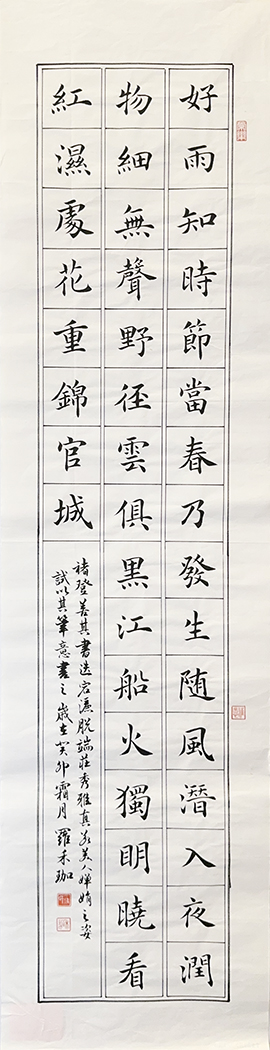 好雨知時節當春乃發生随風潛入夜潤
物細無聲野徑雲俱黑江船火獨眀曉看
紅濕處花重錦官城
褚登善其書迭宕灑脫端莊秀雅真若美人嬋娟之姿
試以其筆意書之歲在癸卯霜月 羅禾珈